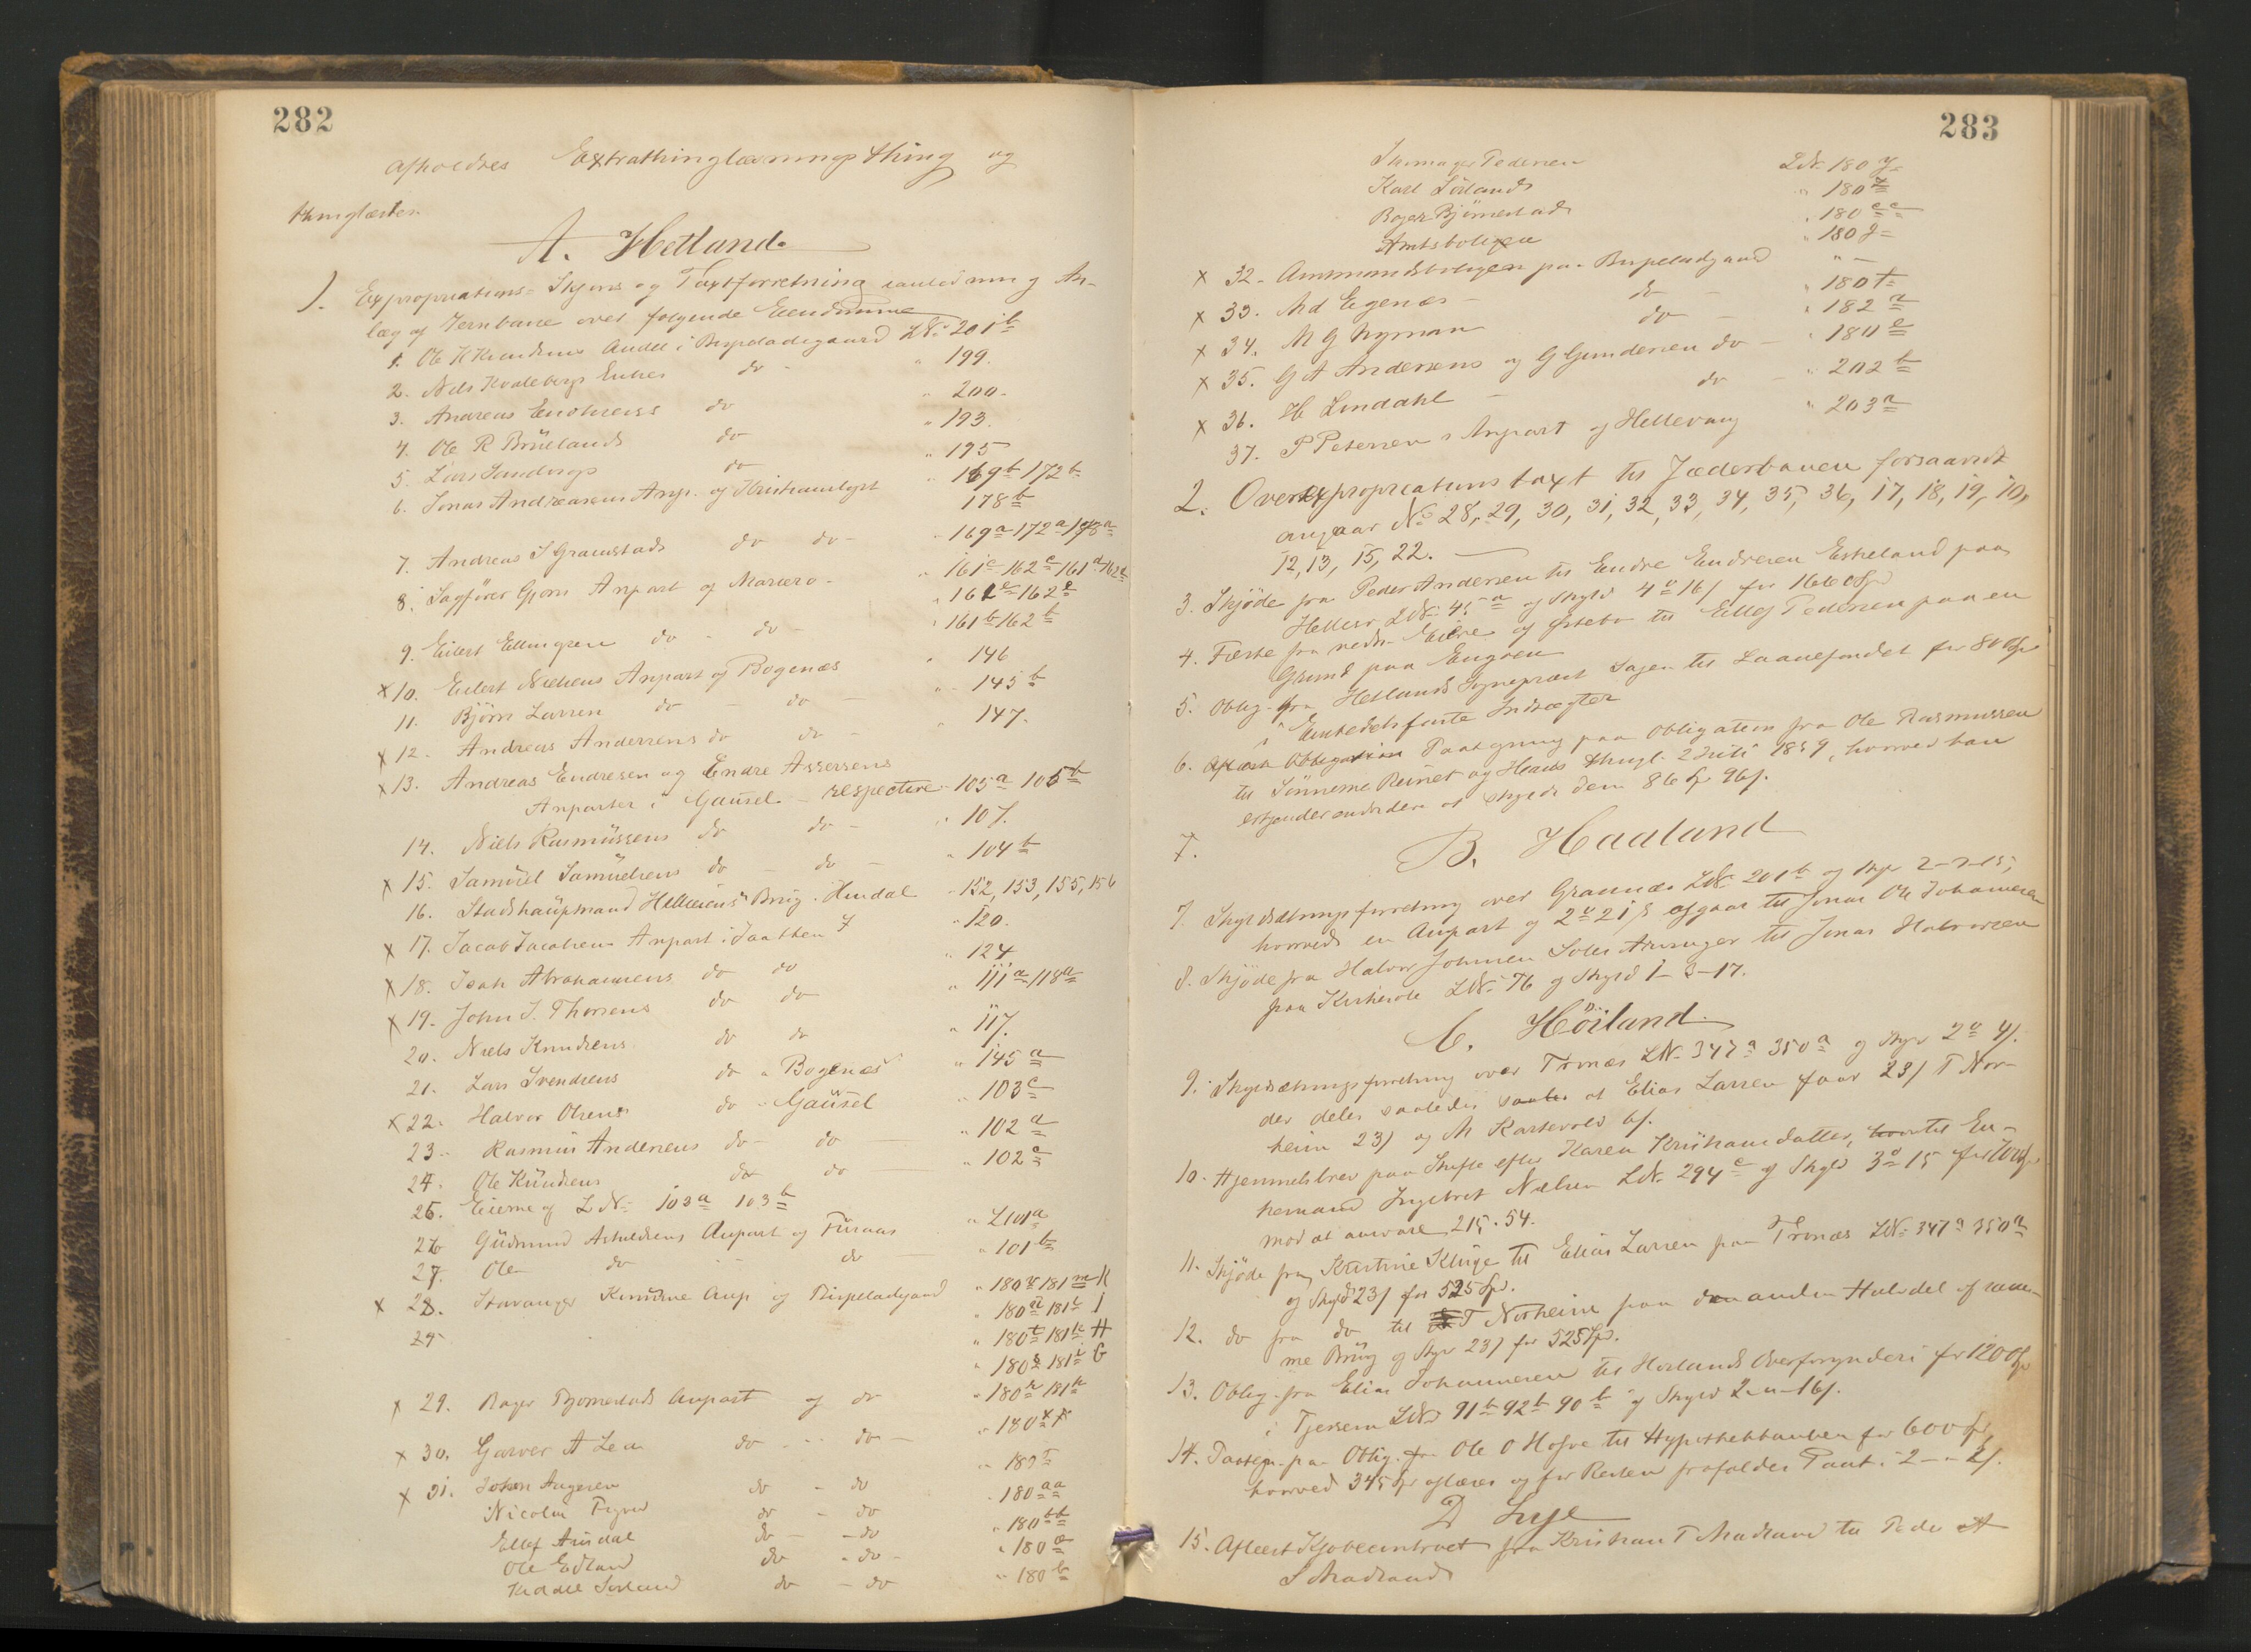 282
afholdtes Extrathinglæsningsthing og
thinglæstes
A. Hetland.
1. Expropriations- Skjøns og Taxtforretning i anledning An-
læg af Jernbane over følgende Eiendomme
1. Ole H Knudsens Andel i Bispeladegaard LN: 201 b
2. Nils Kvalebergs Enkes do - " 199.
3. Andreas Enochsens do " 200.
4. Ole R Brüelands do " 193.
5. Lars Sandvigs do " 195
6. Jonas Andreasens Anp. og Kristianslyst " 169 b 172 b
178 b
7. Andreas S Gramstads do do - " 169 a 172 a 178 a
8. Sagfører Gjørs Anpart og Mariero - " 161 c 162 c 161 d 162 d
" 161 e 162 e
9. Eilert Ellingsen do - do - " 161 b 162 b
x 10. Eilert Nielsens Anpart og Bogenæs " 146
11. Bjørn Larsen do - do - " 145 b
x 12. Andreas Anderssens do do - " 147.
x 13. Andreas Endresen og Endre Assersens
Anparter i Gausel - respective - 105 a 105 b
14. Niels Rasmüssens do do - " 107.
x 15. Samüel Samüelsens do - do - " 104 b
16. Stadshaüptmand Helliesens Brüg. Hindal - 152, 153, 155, 156
x 17. Jacob Jacobsens Anpart i Jaatten 7 " 120.
x 18. Isak Abrahamsens do do " 124
x 19. John J. Thorsens do do " 111 a 118 a
20. Niels Knudsens do do " 117.
21. Lars Svendsens do " Bogenæs " 145 a
x 22. Halvor Olsens do " Gaüsel " 103 c
23. Rasmüs Andersens do - do - " 102 d
24. Ole Knüdsens do do - " 102 c
25. Eierne af LN: 103 a 103 b
26 Güdmund Asbuldsens Anpart og Füraas " L101 a
27. Ole do - do - " 101 b
x 28. Stavanger Kommune Anp og Bispeladegaard " 180 v 181 m K
29 " 180 u 181 l I
" 180 t 181 k H
" 180 s 181 i G
x 29. Roger Bjørnestads Anpart og do " 180 r 181 h
x 30. Garver A Lea do - do - " 180 x
x 31. Johan Aagesen do - do " 180
Nicolai Figved do - do " 180 aa
Ellef Aüsdal do - do " 180 bb
Ole Edland do - do - " 180 a
Keddel Sørland do - do " 180 b
283
Skomager Pedersen LN: 180 y
Karl Sørlands " 180
Bager Bjørnestads " 180 cc
Amtsboligen " 180 g
x 32. Ammandsboligen paa Bispeladgaard " -
x 33. Ad Egenæs - do - " 180 t
x 34. M G Nyman do - " 182 a
x 35. G A Andersens og G Gundersen do - " 184 e
x 36. H Lindahl - do - " 202 b
37. P Petersens Anpart og Hellevang " 203 a
2. Overexpropriationstaxt til Jæderbanen forsaavidt
angaar No 28, 29, 30, 31, 32, 33, 34, 35, 36, 17, 18, 19, 10,
12, 13, 15, 22. -
3. Skjøde fra Peder Andersen til Endre Endresen Eskeland paa
Hellesø LN: 45 a og Skyld 4 o 16 s for 1660 Spd
4. Fæste fra Eiere og til Ellef Pedersen paa en
Grund paa Engøen
5. Oblig. fra Hetlands Sognepræst Sagen til Laanefondet for 80 Spd
i Embedets faste Indtægter
6. Paategning paa Obligation fra Ole Rasmussen
til Sünneme Reinet og Heraas thingl. 2 Juli 1859, hvorved han
erkjender endvidere at skylde dem 86 Sp 96 s.
7. B. Haaland
7. Skyldsætningsforretning over Grannes LN: 201 b og Skyld 2-2-15,
hvorved en Anpart og 2 o 21 s afgaar til Jonas Ole Johannesen
8. Skjøde fra Halvor Johnsen Soles Arvinger til Jonas Halvorsen
paa Kirkesole LN: 76 og Skyld 1-3-17.
C. Höiland.
9. Skyldsætningsforretning over Trones LN: 347 a 350 a og Skyld 2 o 4 s.
der deles saaledes at Elias Larsen faar 23 s T Nor-
heim 23 s og M Karsevold 6 s.
10. Hjemmelsbrev paa Skifte efter Karen Kristiansdatter, til En-
kemand Ingebret Nielsen LN: 294 c og Skyld 3 o 15 for 700 Spd
mod at ansvare 215. 54.
11. Skjøde fra Kristine Kluge til Elias Larsen paa Trones LN: 347 a 350 a
og Skyld 23 s for 525 Spd.
12. do fra do til T Norheim paa den anden Halvdel af sam-
me Brüg og Skyld 23 s for 525 Spd.
13. Oblig. fra Elias Johannesen til Hølands Overformynderi for 120 Spd
i Tjessem LN: 91 b 92 b 90 b og Skyld 2-"-16 s.
14. Paateg. paa Oblig. fra Ole O Hofve til Hypothekbanken for 600 Sp,
hvorved 345 Sp aflæses og for Resten frafaldes Pant i 2-"-2 s.
D Lye
15. Aflæst Kjøbecontract fra Kristian T Madland til Peder
S Madland